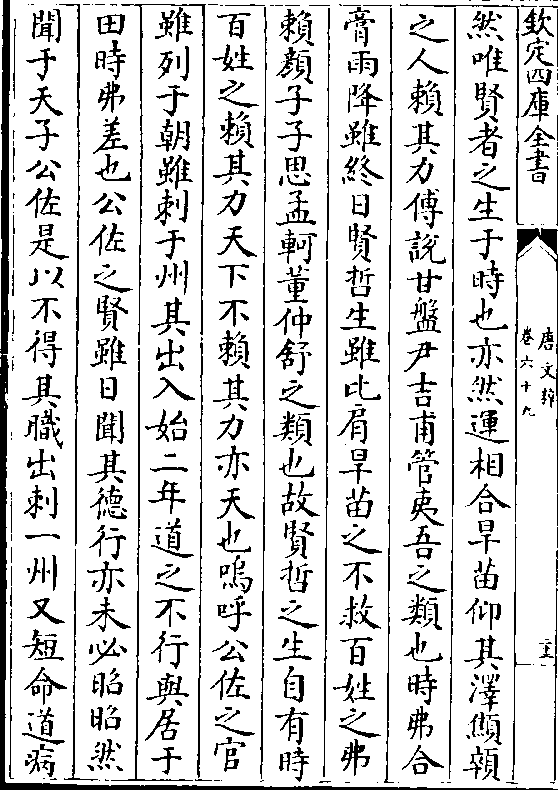 欽定四庫全書
唐文粹
卷六十九
然唯賢者之生于時也亦然運相合旱苗仰其澤顯頴
之人賴其力傅說甘盤尹吉甫管夷吾之類也時弗合
膏雨降雖終日賢哲生雖比肩旱苗之不救百姓之弗
賴顏子子思孟軻董仲舒之類也故賢哲之生自有時
百姓之賴其力天下不賴其力亦天也嗚呼公佐之官
雖列于朝雖刺于州其出入始二年道之不行與居于
田時弗差也公佐之賢雖日聞其德行亦未必昭昭然
聞于天子公佐是以不得其職出刺一州又短命道病